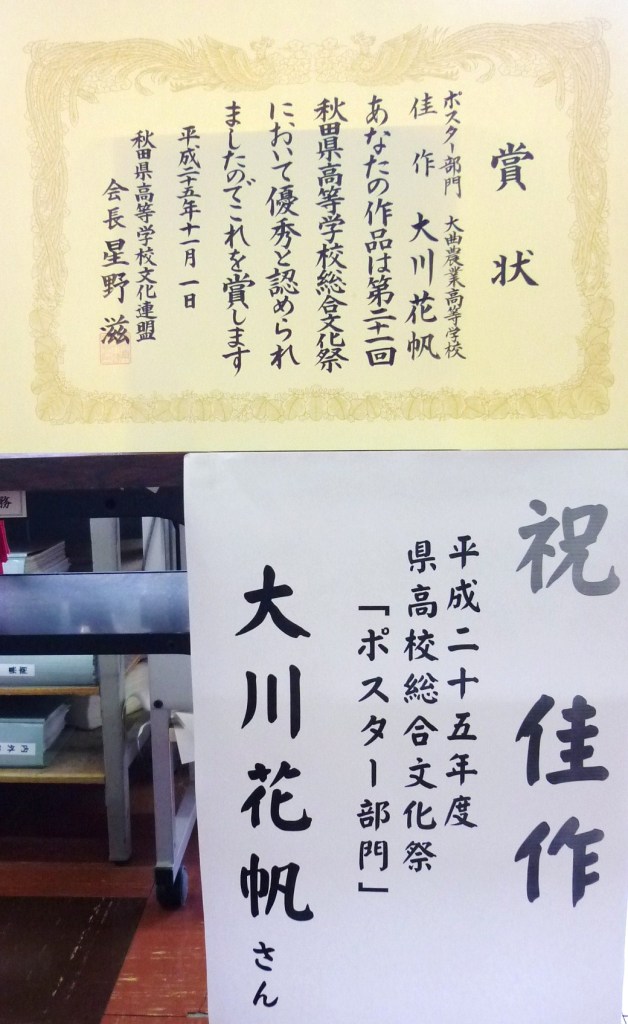 賞状
ポスター部門　大曲農業高等学校
佳作　大川花帆
あなたの作品は第二十一回
秋田県高等学校総合文化祭
において優秀と認められ
ましたのでこれを賞します
平成二十五年十一月一日
秋田県高等学校文化連盟
会長　星野　滋
祝　佳作
平成二十五年度
県高校総合文化祭
「ポスター部門」
大川花帆さん
務
内外